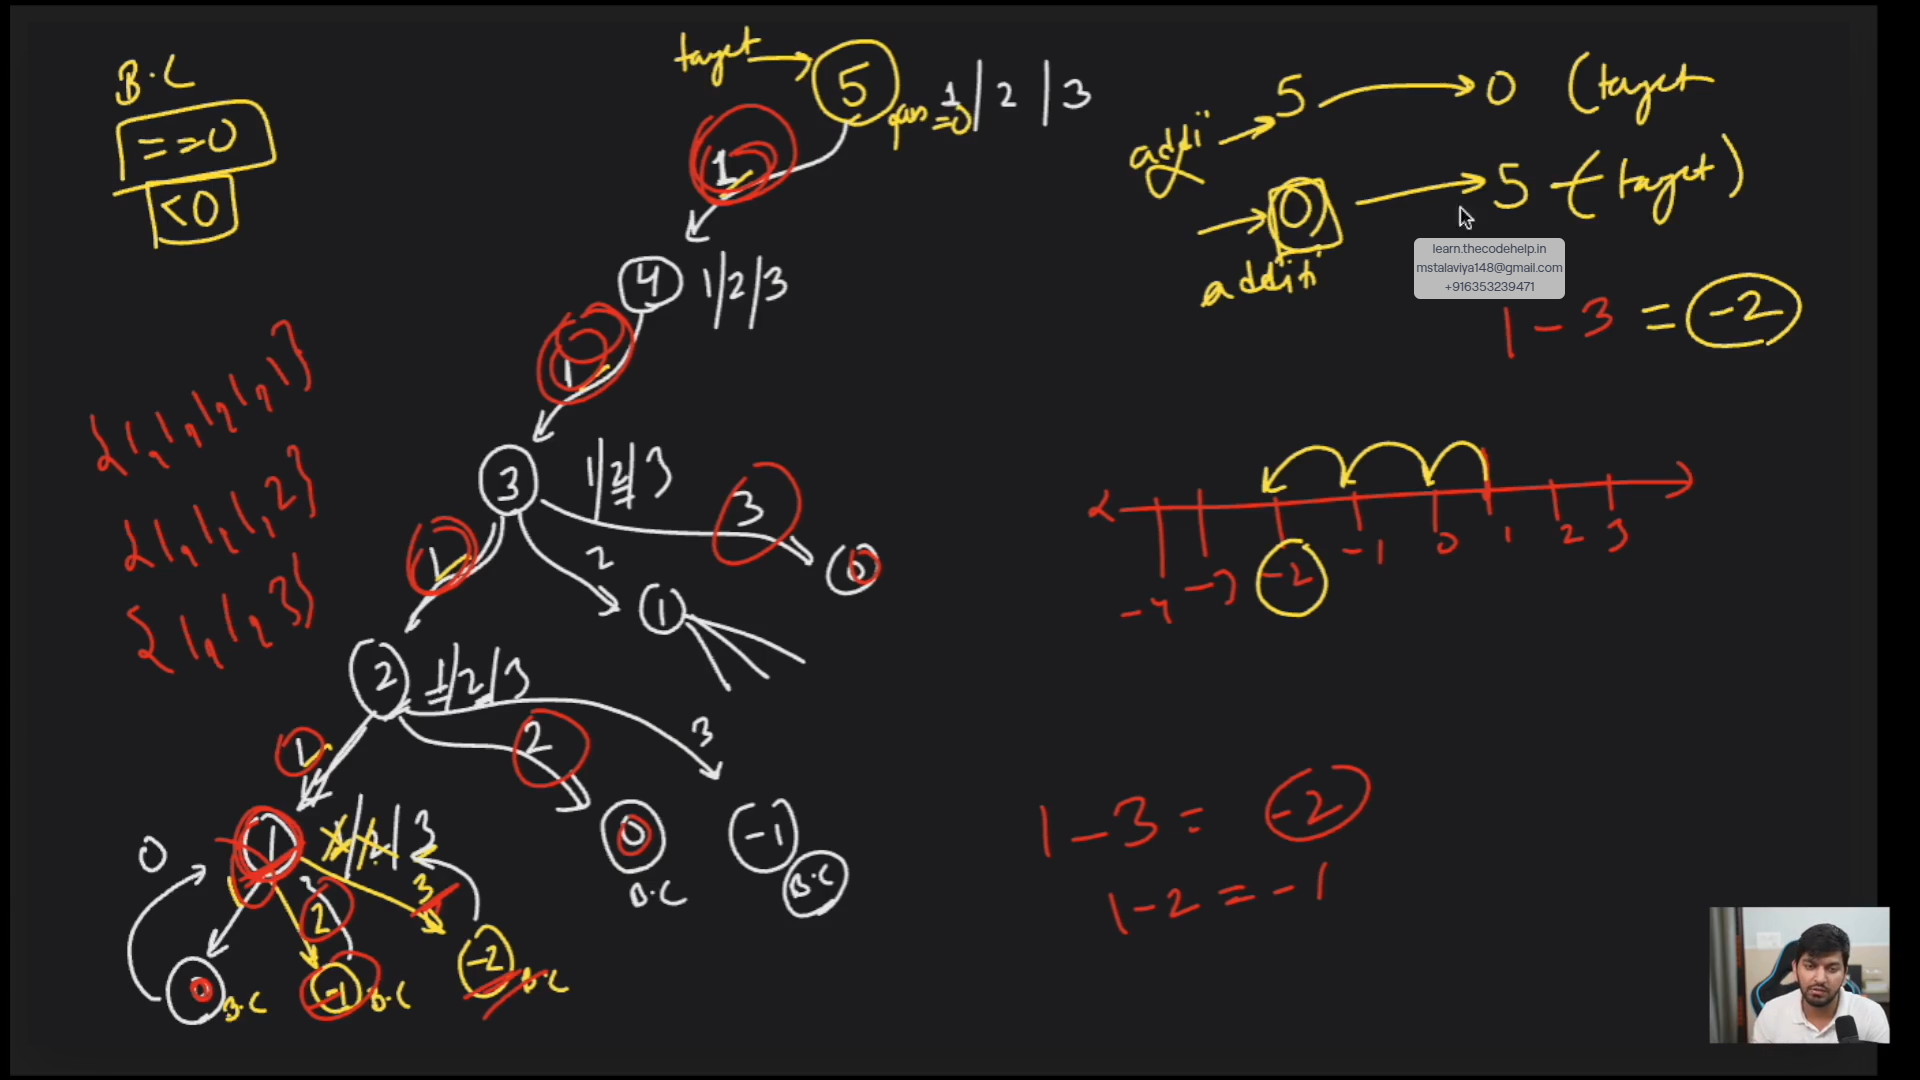 B.C
==0
<0
target → 5
ans =0
1/2/3
1
4 1/2/3
1
3 1/2/3
1
2
3
0
1
2 1/2/3
1
2
3
0
B.C
-1
B.C
1 1/2/3
0
2
3
0 B.C
-1 B.C
-2 B.C
{1,1,1,1,1}
{1,1,1,2}
{1,1,3}
5 → 0 (target
→ 0 → 5 - (target)
learn.thecodehelp.in
mstalaviya148@gmail.com
+916353239471
1 - 3 = -2
-4 -3 -2 -1 0 1 2 3
1 - 3 = -2
1 - 2 = -1